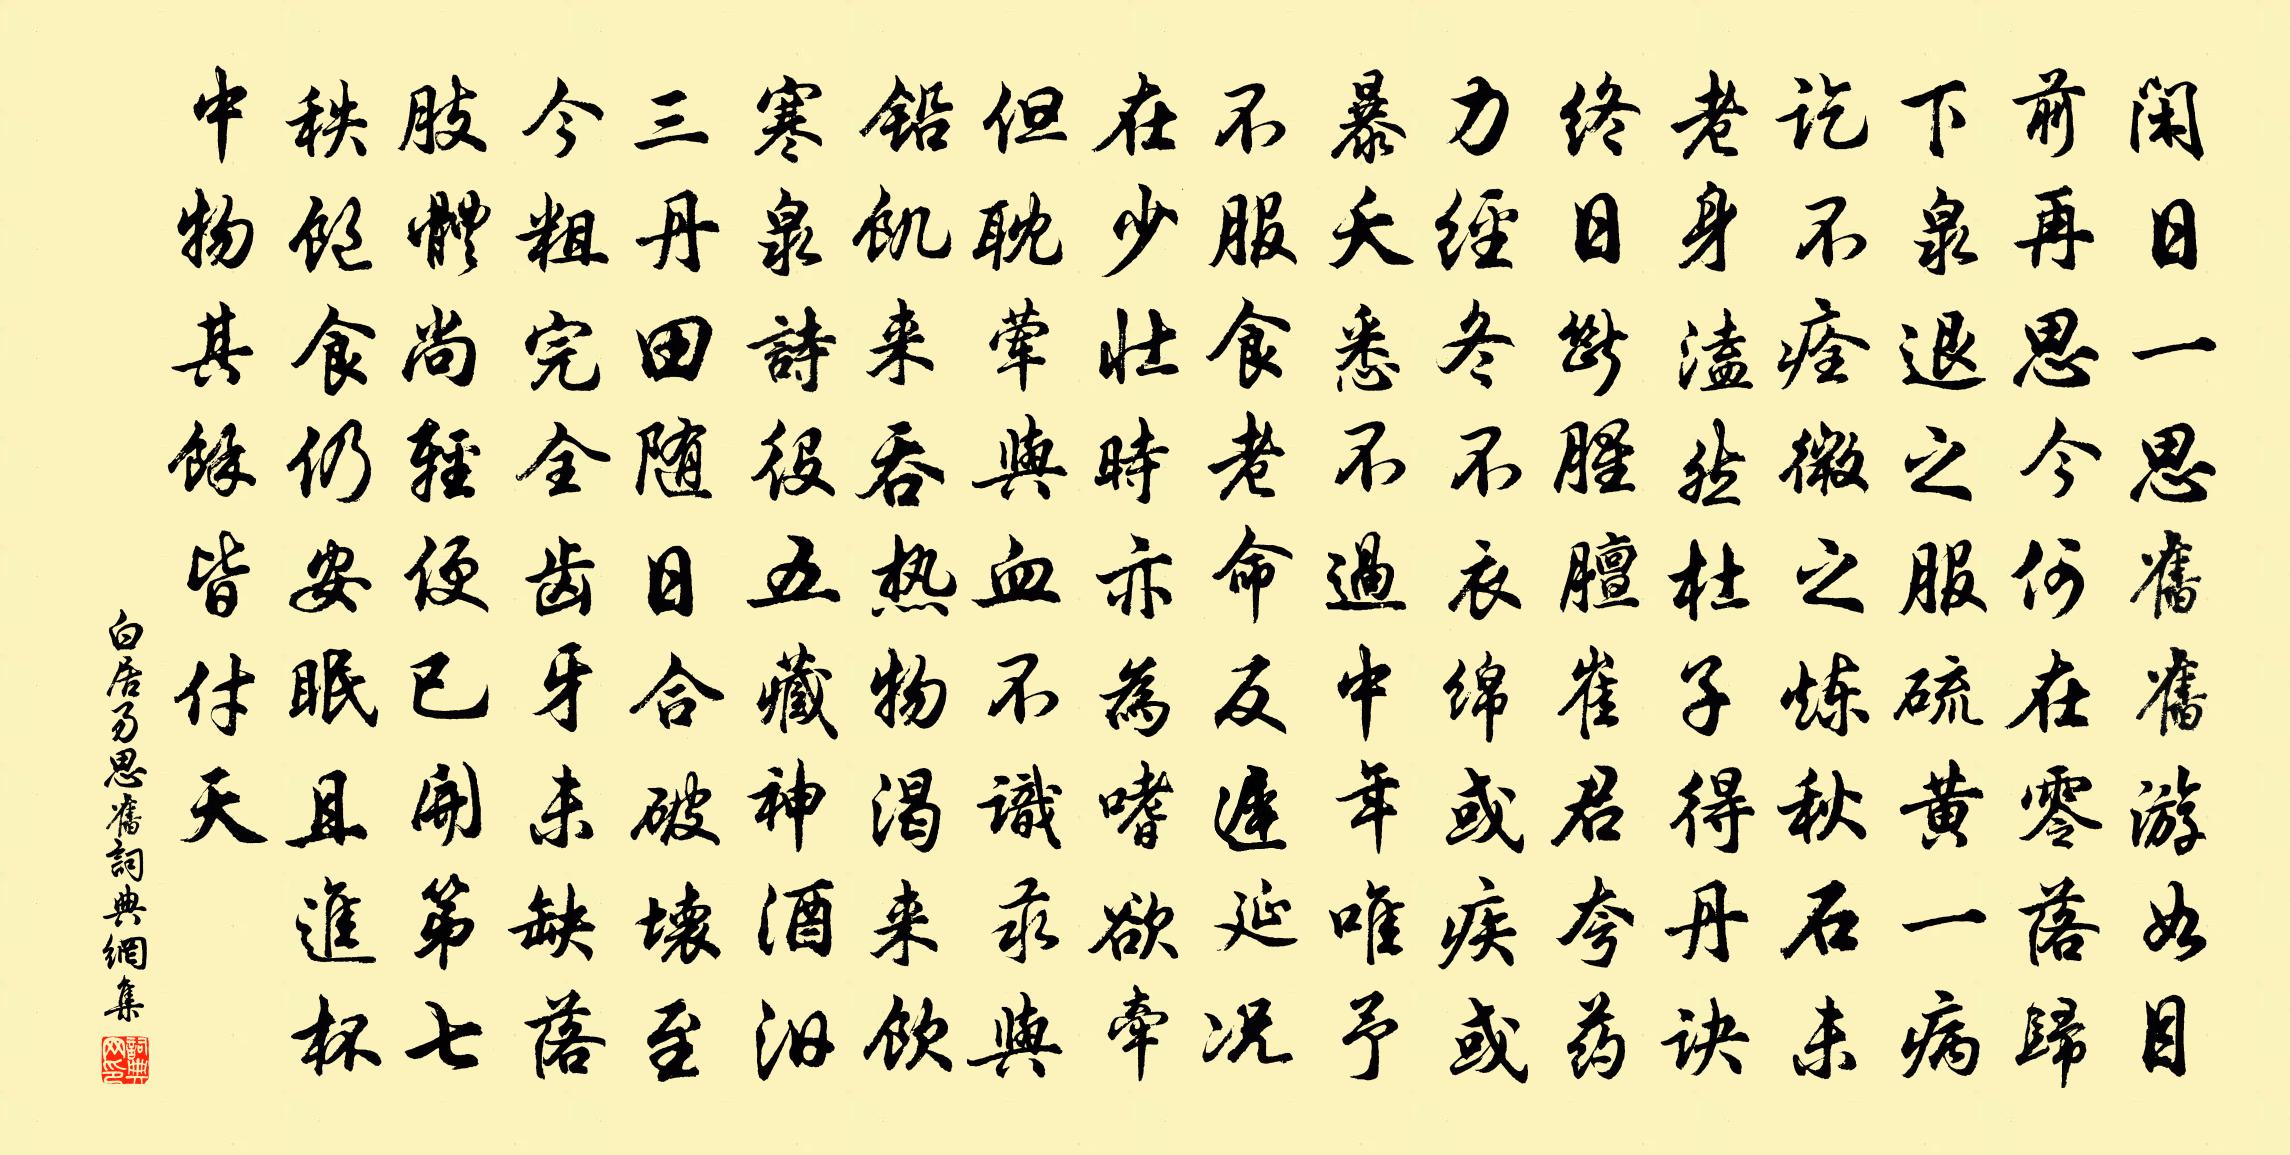 闲日一思舊舊游如目
前再思今何在零落歸
下泉退之服硫黄一病
訖不痊微之炼秋石未
老身溘然杜子得丹诀
终日斷腥膻崔君夸药
力經冬不衣绵或疾或
暴夭悉不過中年唯予
不服食老命反遲延况
在少壮時亦為嗜欲牵
但耽荤與血不識汞與
铅飢来吞热物渴来飲
寒泉詩役五藏神酒汩
三丹田随日合破壊至
今粗完全齿牙未缺落
肢體尚輕便已開第七
秩飽食仍安眠且進杯
中物其餘皆付天
白居易思舊詞典網集
詞典网印